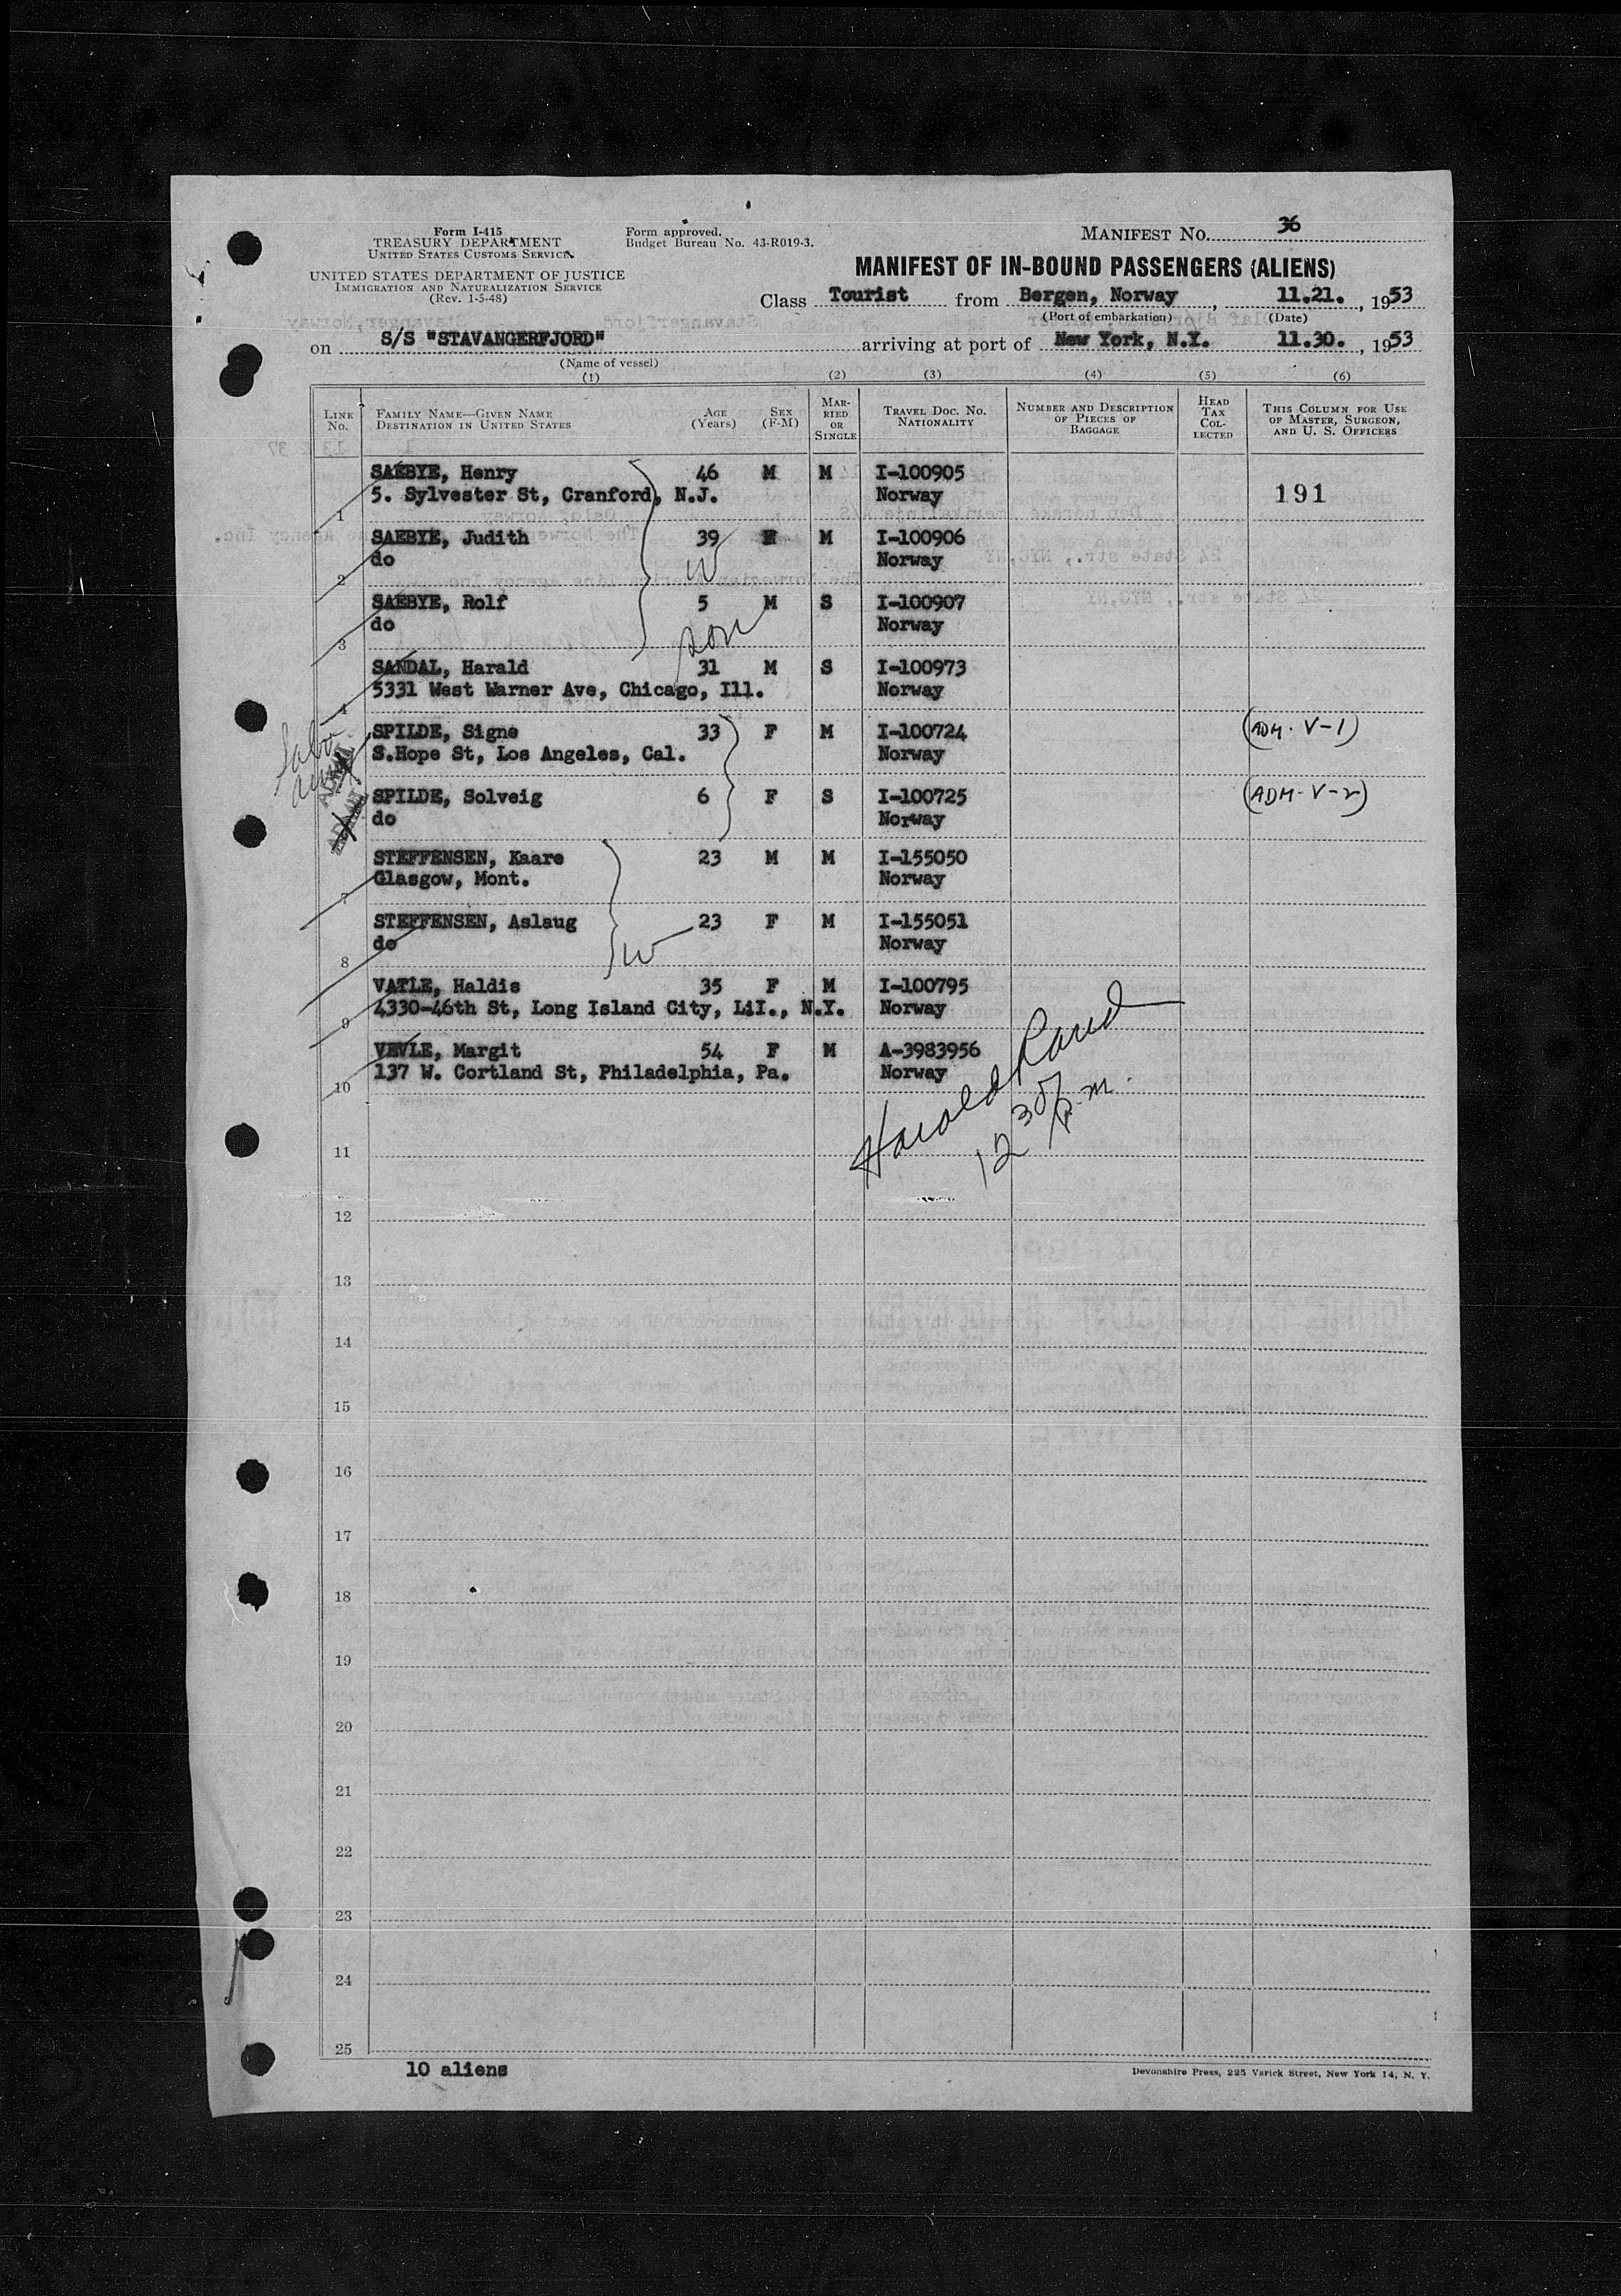 Form I-415
TREASURY DEPARTMENT
UNITED STATES CUSTOMS SERVICE
UNITED STATES DEPARTMENT OF JUSTICE
IMMIGRATION AND NATURALIZATION SERVICE
(Rev. 1-5-48)
Form approved.
Budget Bureau No. 43-R019-3.
MANIFEST No. 36
MANIFEST OF IN-BOUND PASSENGERS (ALIENS)
Class Tourist from Bergen, Norway, 11.21., 1953
(Port of embarkation) (Date)
on S/S "STAVANGERFJORD" arriving at port of New York, N.Y. 11.30., 1953
(Name of vessel)
(1) (2) (3) (4) (5) (6)
LINE No. FAMILY NAME—GIVEN NAME DESTINATION IN UNITED STATES AGE (Years) SEX (F-M) MARRIED OR SINGLE TRAVEL DOC. NO. NATIONALITY NUMBER AND DESCRIPTION OF PIECES OF BAGGAGE HEAD TAX COLLECTED THIS COLUMN FOR USE OF MASTER, SURGEON, AND U. S. OFFICERS
SAEBYE, Henry 46 M M I-100905
1 5. Sylvester St, Cranford, N.J. Norway 191
SAEBYE, Judith 39 M I-100906
2 do W Norway
SAEBYE, Rolf 5 M S I-100907
3 do son Norway
SANDAL, Harald 31 M S I-100973
4 5331 West Warner Ave, Chicago, Ill. Norway
SPILDE, Signe 33 F M I-100724 (ADM. V-1)
S.Hope St, Los Angeles, Cal. Norway
SPILDE, Solveig 6 F S I-100725 (ADM. V-2)
do Norway
STEFFENSEN, Kaare 23 M M I-155050
7 Glasgow, Mont. Norway
STEFFENSEN, Aslaug 23 F M I-155051
8 do W Norway
VATLE, Haldis 35 F M I-100795
9 4330-46th St, Long Island City, L.I., N.Y. Norway
VEVLE, Margit 54 F M A-3983956
10 137 W. Cortland St, Philadelphia, Pa. Norway
Harold
12 30 p.m.
11
12
13
14
15
16
17
18
19
20
21
22
23
24
25
10 aliens
Devonshire Press, 225 Varick Street, New York 14, N. Y.